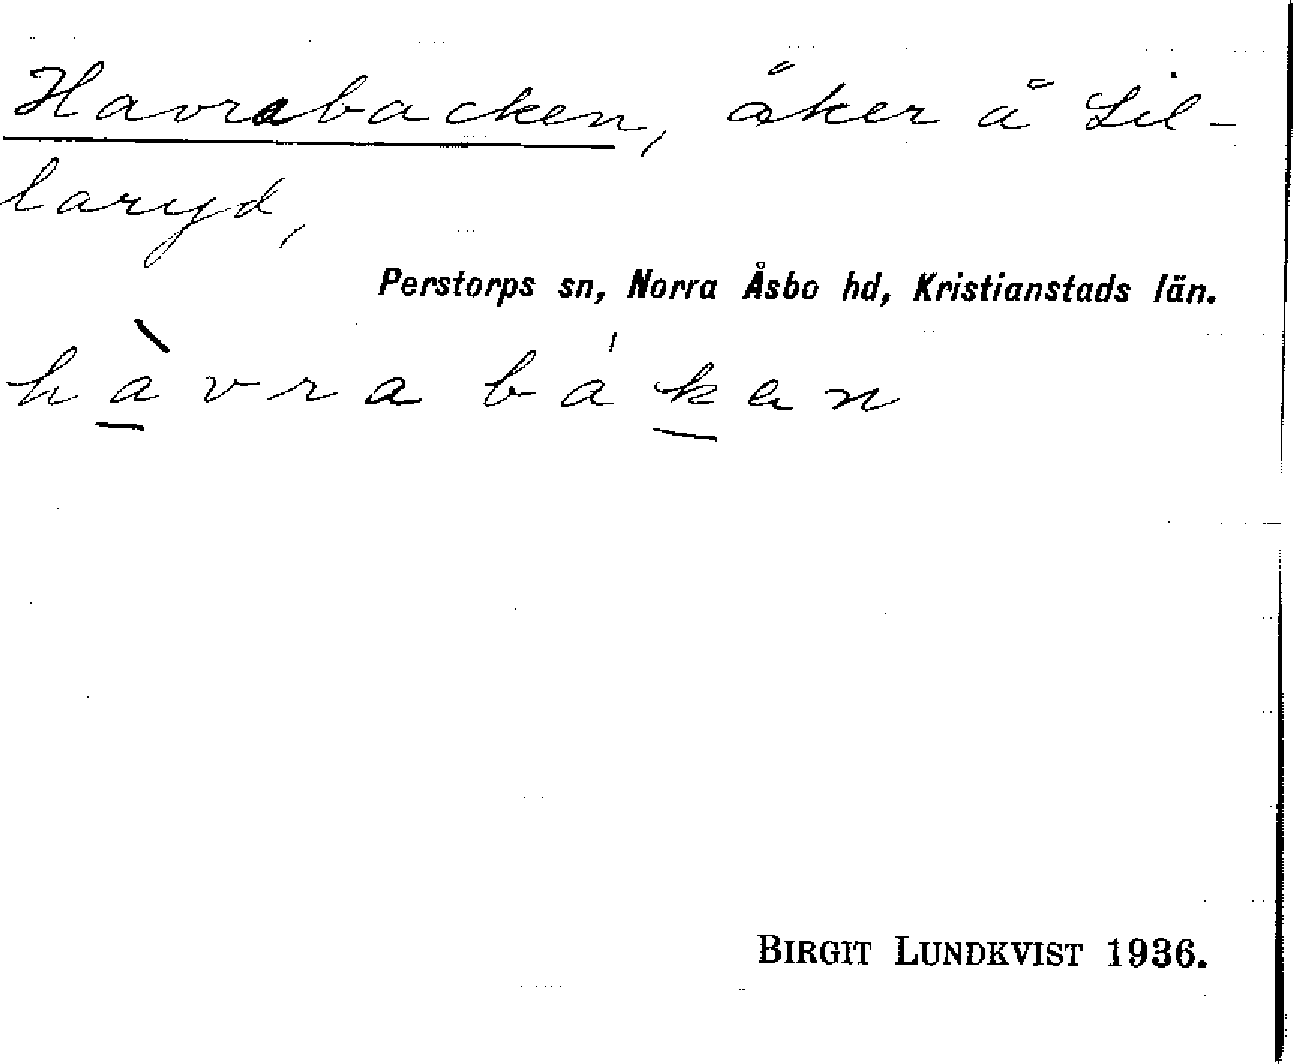 Havrabacken, åker å Lil-
laryd,
Perstorps sn, Norra Åsbo hd, Kristianstads län.
hàvra bákan
BIRGIT LUNDKVIST 1936.